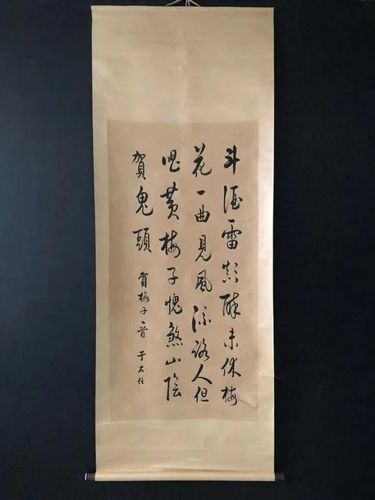 斗酒雷顛醉未休梅
花一曲見風流路人但
唱黄梅子愧煞山陰
賀鬼頭
賀梅子 于右任